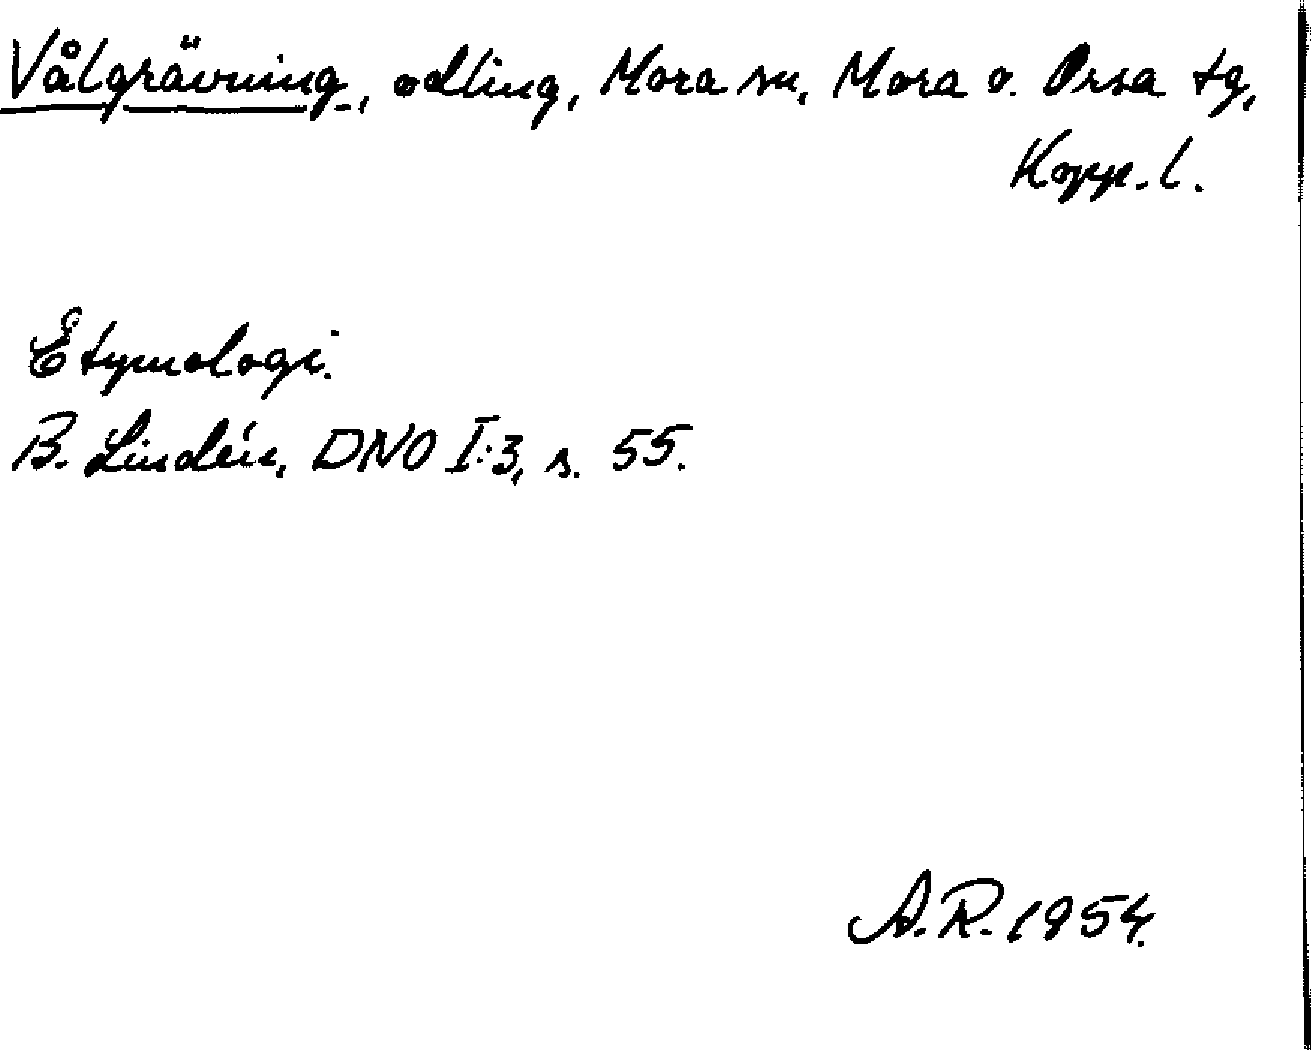 Vålgrävning, odling, Mora sn, Mora o. Orsa tg,
Kopp. l.
Etymologi.
B. Lindén, DNO I:3, s. 55.
A.R. 1954.